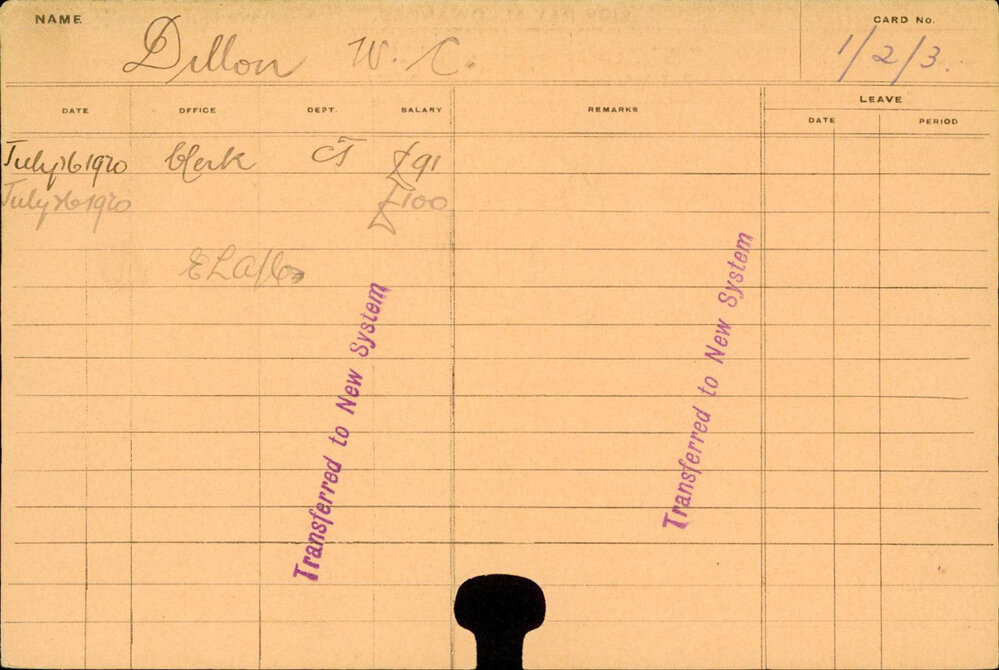 NAME
CARD No.
Dillon W. C.
1/2/3.
DATE OFFICE DEPT. SALARY REMARKS LEAVE
DATE PERIOD
July 26 1920 Clerk CT £91
July 26 1920 £100
Transferred to New System
Transferred to New System